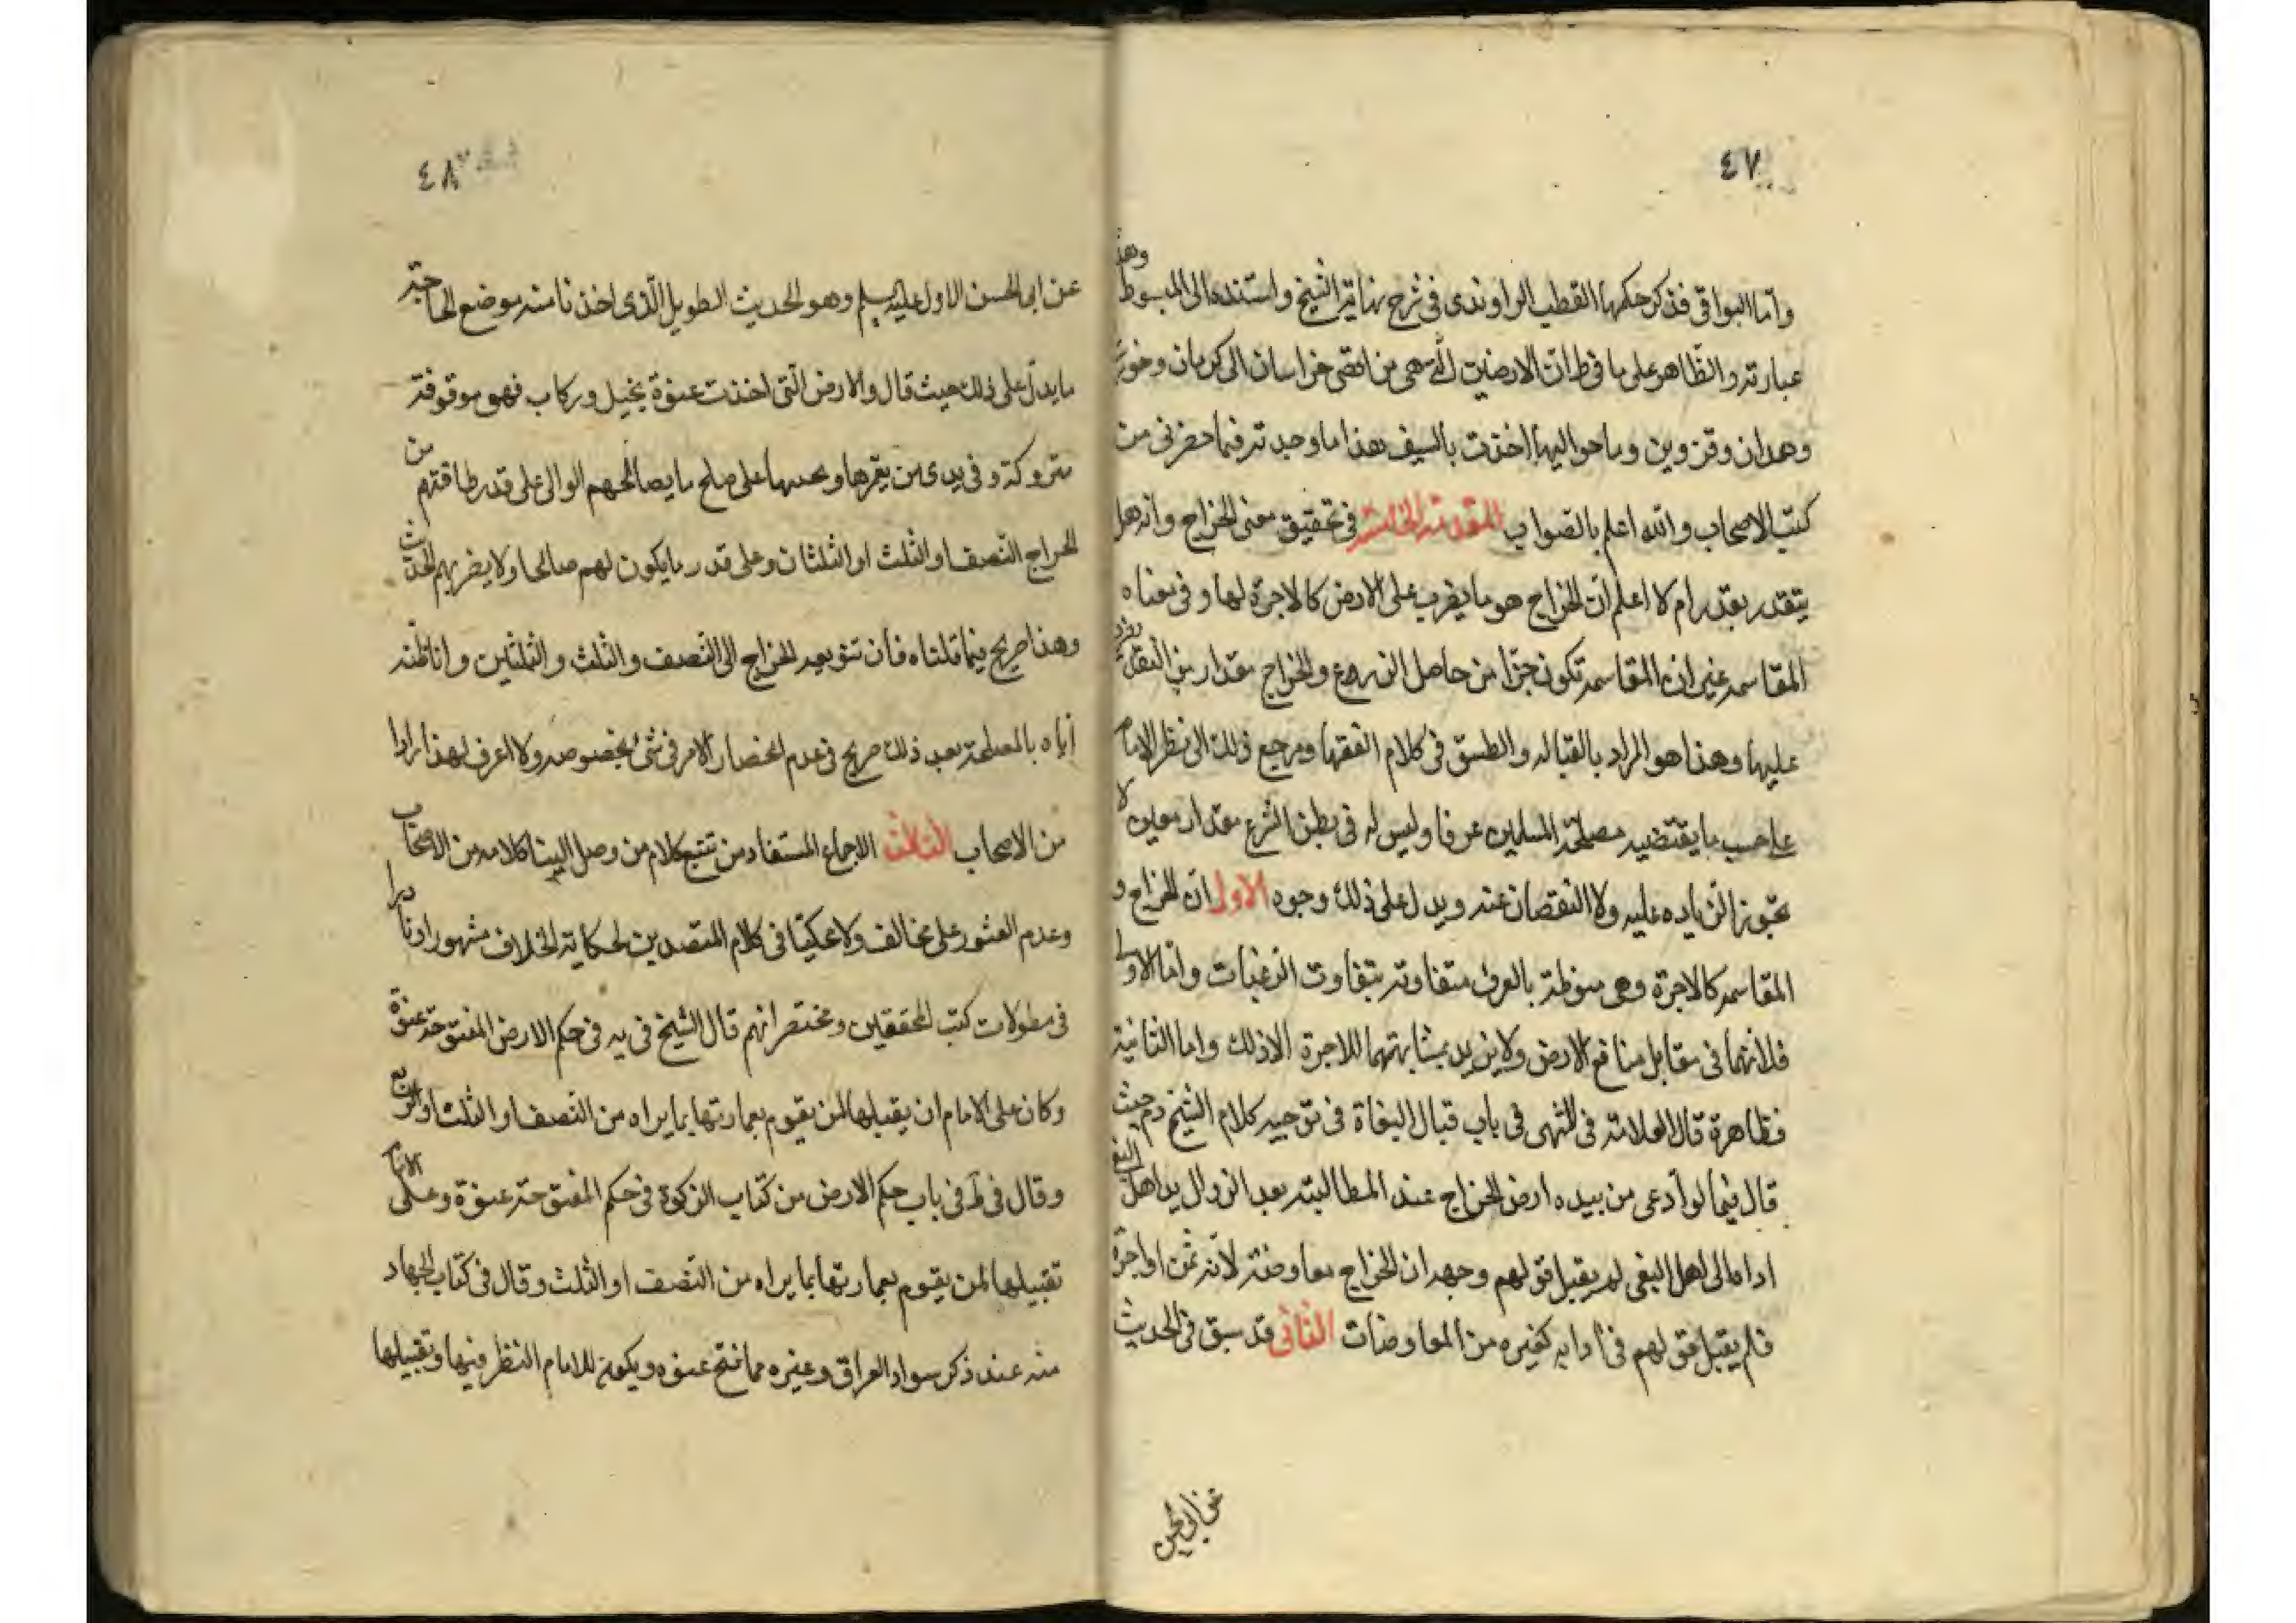 ٤٧
واما البواقى فذكر حكمها القطب الراوندى فى شرح نهاية الشيخ واسنده الى المبسوط وهذه
عبارته والظاهر على ما فى ط ان الارضين التى هى من اقصى خراسان الى كرمان وخوزستان
وهمدان وقزوين وما حواليها اخذت بالسيف هذا ما وجدته فيما حضرنى من
كتب الاصحاب والله اعلم بالصواب المقدمة الخامسة فى تحقيق معنى الخراج وانه هل
يتقدر بقدر ام لا اعلم ان الخراج هو ما يضرب على الارض كالاجرة لها وفى معناه
المقاسمه غير ان المقاسمه تكون جزا من حاصل الزرع والخراج مقدار من النقد يضرب
عليها وهذا هو المراد بالقباله والطسق فى كلام الفقها ومرجع ذلك الى نظر الامام
على حسب ما يقتضيه مصلحة المسلمين عرفا وليس له فى نظر الشرع مقدار معين لا
تجوز الزياده عليه ولا النقصان عنه ويدل على ذلك وجوه الاول ان الخراج و
المقاسمه كالاجرة وهى منوطة بالعرف متفاوته بتفاوت الرغبات واما الاولى
فلانهما فى مقابل منافع الارض ولا نريد بمشابهتهما للاجرة الا ذلك واما الثانية
فظاهرة قال العلامة فى المنتهى فى باب قتال البغاة فى توجيه كلام الشيخ ره حيث
قال فيما لو ادعى من بيده ارض الخراج عند المطالبته بعد الزوال يد اهل البغى
اداه الى اهل البغى لم يقبل قولهم وجهه ان الخراج معاوضة لانه ثمن او اجرة
فلم يقبل قولهم فى ادايه كغيره من المعاوضات الثانى قد سبق فى الحديث
عن ابى الحسن
٤٨
عن ابى الحسن الاول عليه السلم وهو الحديث الطويل الذى اخذنا منه موضع الحاجة
ما يدل على ذلك حيث قال والارض التى اخذت عنوة بخيل وركاب فهو موقوفة
متروكة فى يدى من يعمرها ويحييها على صلح ما يصالحهم الوالى على قدر طاقتهم من
الخراج النصف او الثلث او الثلثان وعلى قدر ما يكون لهم صالحا ولا يضر بهم الحديث
وهذا صريح فيما قلناه فان تنويعه الخراج الى النصف والثلث والثلثين واناطته
اياه بالمصلحة بعد ذلك صريح فى عدم انحصار الامر فى شئ بخصوصه ولا اعرف لهذا رادا
من الاصحاب الثالث الاجماع المستفاد من تتبع كلام من وصل الينا كلامه من الاصحاب
وعدم العثور على مخالف ولا محكيا فى كلام المتصدين لحكاية الخلاف مشهورا ونادرا
فى مطولات كتب المحققين ومختصراتهم قال الشيخ فى يه فى حكم الارض المفتوحة عنوة
وكان على الامام ان يقبلها لمن يقوم بعمارتها بما يراه من النصف او الثلث او الربع
وقال فى ط فى باب حكم الارض من كتاب الزكوة فى حكم المفتوحة عنوة وعلى الامام
تقبيلها لمن يقوم بعمارتها بما يراه من النصف او الثلث وقال فى كتاب الجهاد
منه عند ذكر سواد العراق وغيره مما فتح عنوه ويكون للامام النظر فيها وتقبيلها